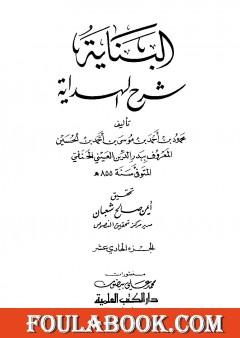 البناية
شرح الهداية
تأليف
محمود بن أحمد بن موسى بن أحمد بن الحسين
المعروف ببدر الدين العيني الحنفي
المتوفى سنة ٨٥٥ هـ
تحقيق
أيمن صالح شعبان
مدير مركز تحقيق النصوص
الجزء الحادي عشر
منشورات
محمد علي بيضون
دار الكتب العلمية
FOULABOOK.COM